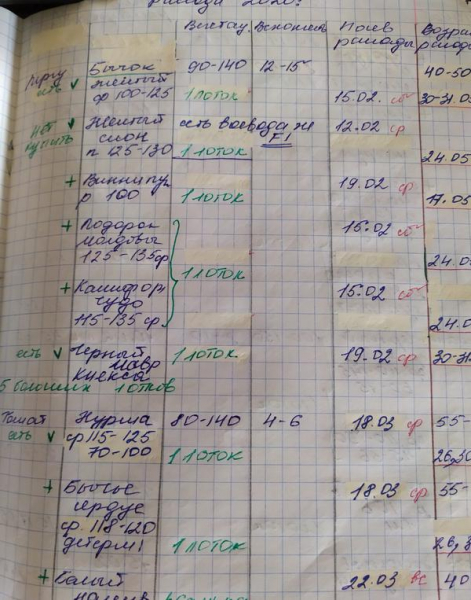 рассады 2020?
Вегетац. Всхожесть Посев рассады Возра расад
Бычок 90-140 12-15 40-50
есть ✓ желтый
ф 100-125 1 лоток 15.02. сб 30-31.03
нет Желтый есть воевода ж 12.02 ср
купить слон F1
п 125-130 1 лоток 24.05
+ Винни пух 19.02 ср
р 100 1 лоток 17.05
+ Подарок 15.02 сб
молдовы
125-135ф 24.0
1 лоток
+ Калифорн 15.02 сб
чудо
115-135 ср. 24.0
есть ✓ Черный 1 лоток 19.02 ср 30-3
мавр
5 больших лотков
Томат 80-140 4-6 18.03 ср 55-
есть ✓ ф 115-125
70-100 1 лоток 26,30
+ Бычье 18.03 ср 55-
сердце
ср. 118-120
детерм 1 лоток
+ 22.03 вс 40